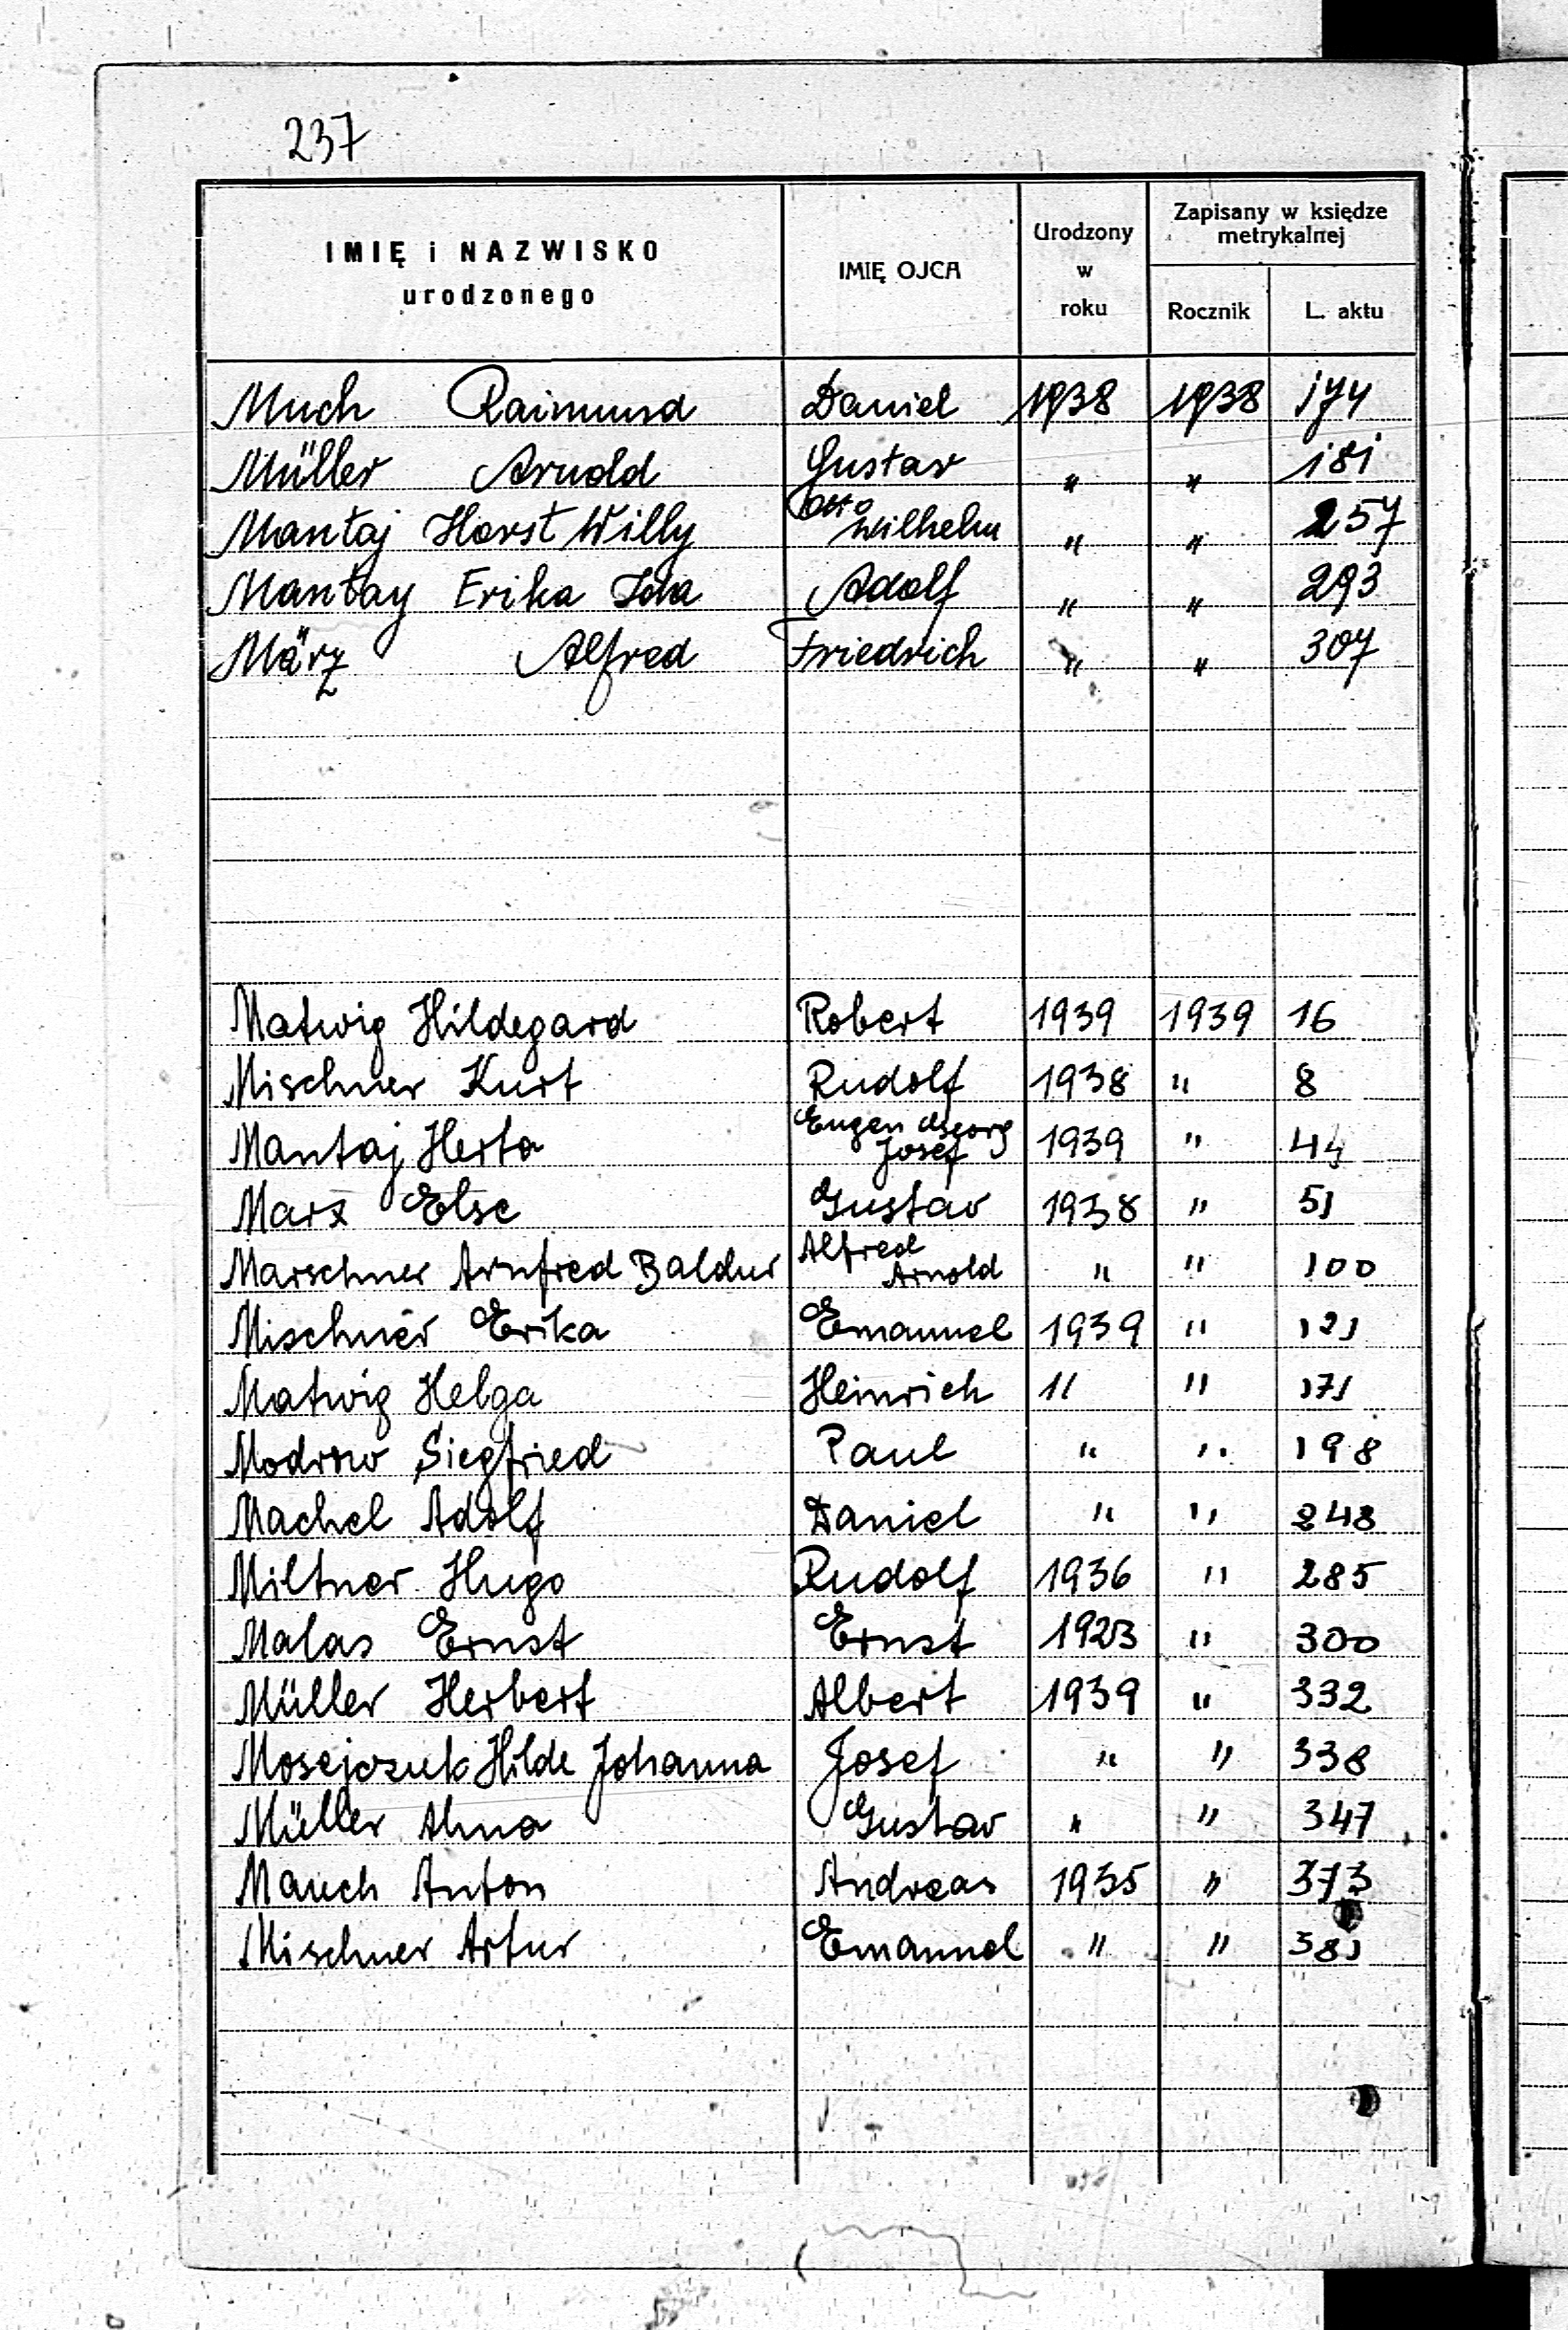 237
IMIĘ i NAZWISKO urodzonego | IMIĘ OJCA | Urodzony w roku | Zapisany w księdze metrykalnej
Rocznik | L. aktu
Much Raimund | Daniel | 1938 | 1938 | 174
Müller Arnold | Gustav | " | " | 181
Mantaj Horst Willy | Otto Wilhelm | " | " | 257
Mantay Erika Ida | Adolf | " | " | 293
März Alfred | Friedrich | " | " | 307
Matwig Hildegard | Robert | 1939 | 1939 | 16
Mischner Kurt | Rudolf | 1938 | " | 8
Mantaj Herta | Eugen Georg Josef | 1939 | " | 44
Marx Else | Gustav | 1938 | " | 51
Marschner Arnfred Baldur | Alfred Arnold | " | " | 100
Mischner Erika | Emanuel | 1939 | " | 121
Matwig Helga | Heinrich | " | " | 171
Modrow Siegfried | Paul | " | " | 198
Machel Adolf | Daniel | " | " | 248
Miltner Hugo | Rudolf | 1936 | " | 285
Malas Ernst | Ernst | 1923 | " | 300
Müller Herbert | Albert | 1939 | " | 332
Mosejczuk Hilde Johanna | Josef | " | " | 338
Müller Alma | Gustav | " | " | 347
Mauch Anton | Andreas | 1935 | " | 373
Mischner Artur | Emanuel | " | " | 381